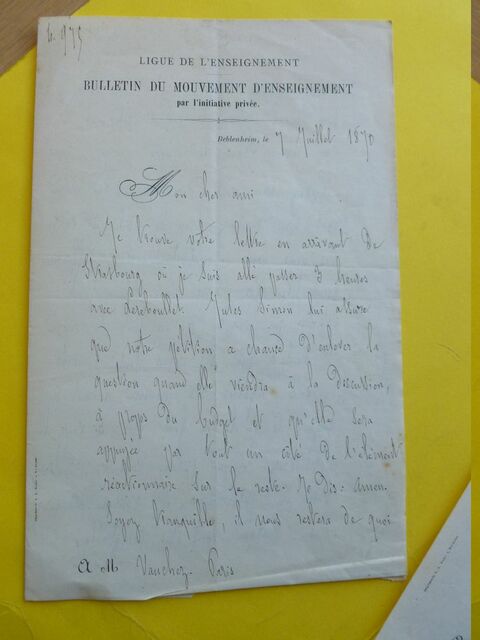 4.975
LIGUE DE L'ENSEIGNEMENT
BULLETIN DU MOUVEMENT D'ENSEIGNEMENT
par l'initiative privée.
Beblenheim, le 7 Juillet 1870
Mon cher ami
Je trouve votre lettre en arrivant de
Strasbourg où je suis allé passer 3 heures
avec Lereboullet. Jules Simon lui assure
que notre pétition a chance d'enlever la
question quand elle viendra à la discution,
à propos du budget et qu'elle sera
appuyée par tout un côté de l'élément
réactionnaire sur le reste. Je dis : amen.
Soyez tranquille, il nous restera de quoi
A M Vauchez. Paris